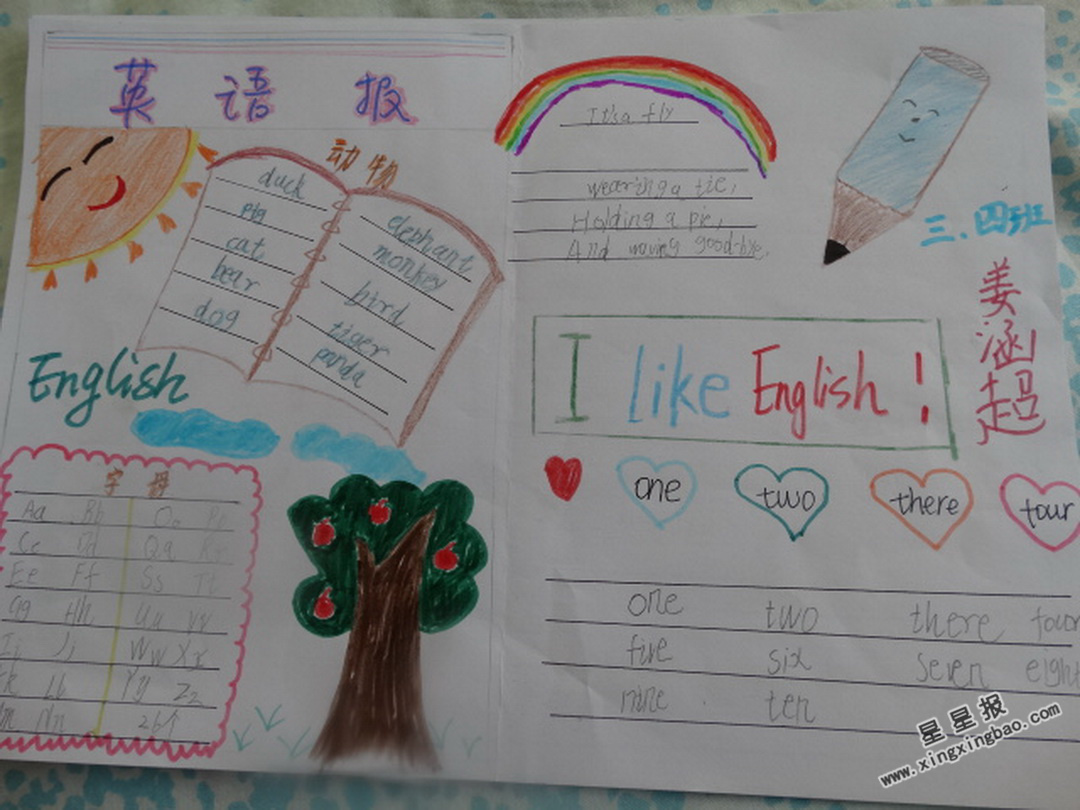 英语报
动物
duck
pig
cat
bear
dog
elephant
monkey
bird
tiger
panda
English
字母
Aa Bb Oo Pp
Cc Dd Qq Rr
Ee Ff Ss Tt
Gg Hh Uu Vv
Ii Jj Ww Xx
Kk Ll Yy Zz
Mm Nn 26个
It's a fly
wearing a tie,
Holding a pie,
And waving good-bye.
三.四班
姜涵超
I like English!
one two there four
one two there four
five six seven eight
nine ten
星星报
www.xingxingbao.com